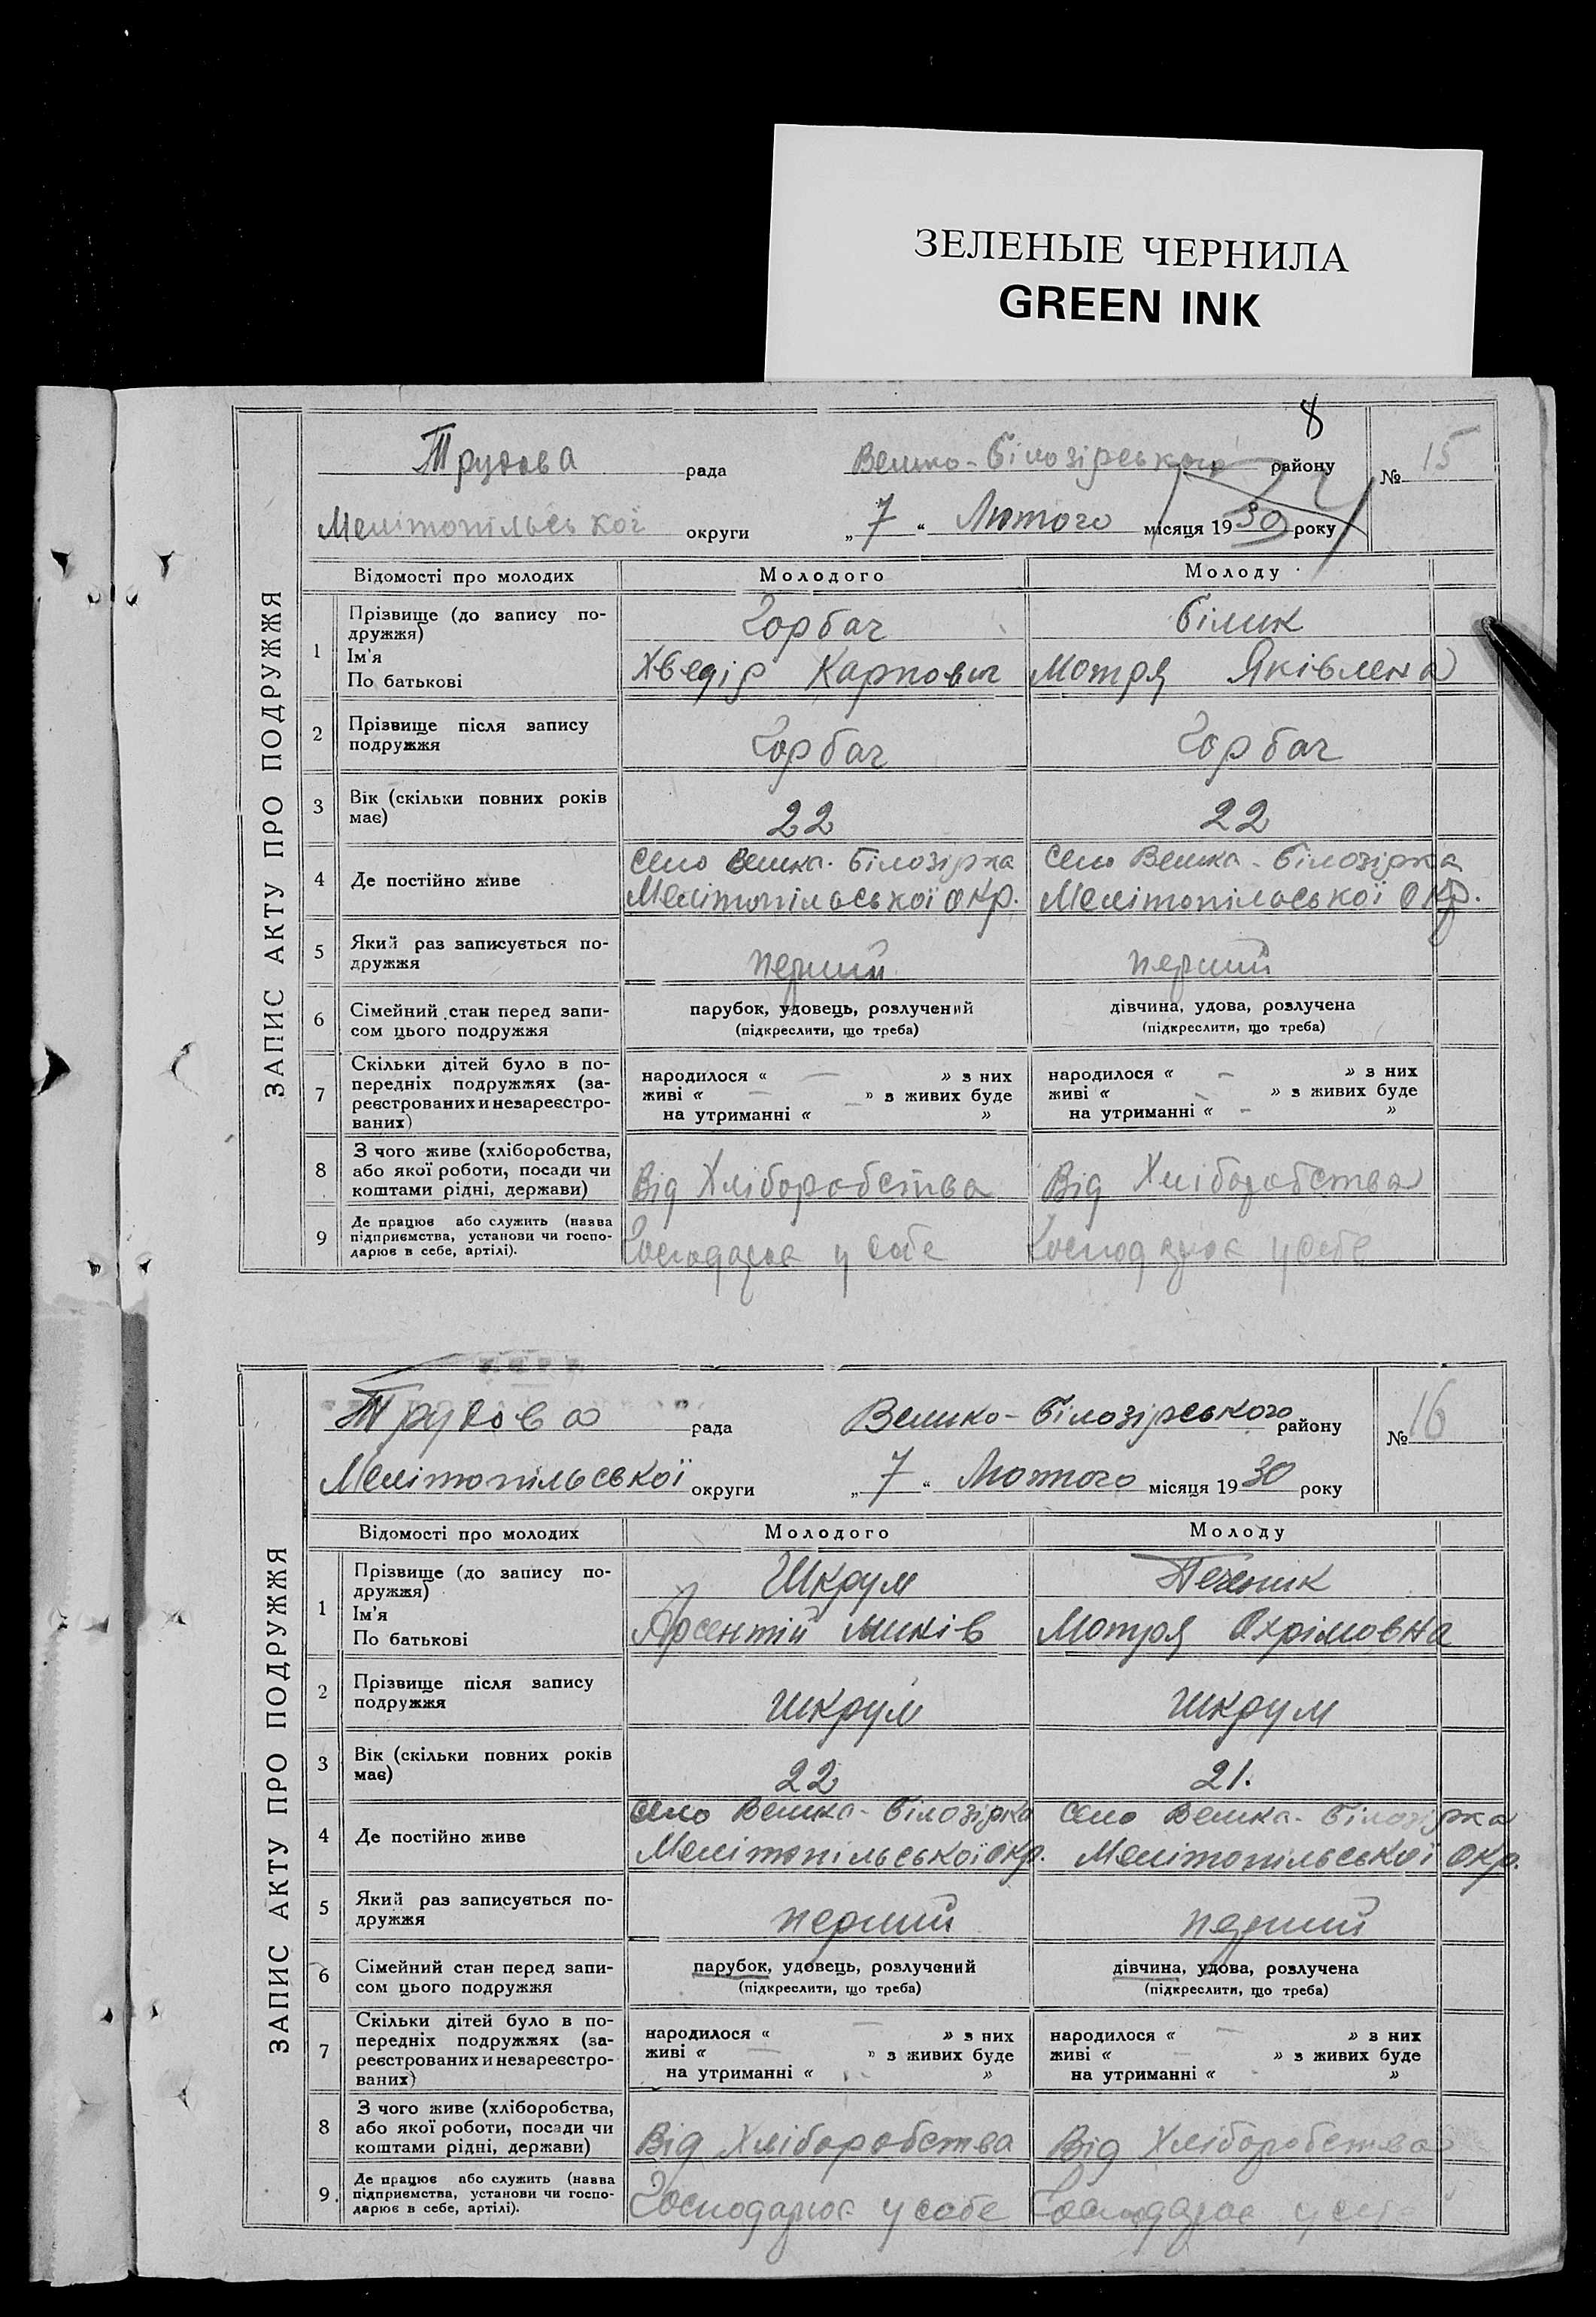 ЗЕЛЕНЫЕ ЧЕРНИЛА
GREEN INK
8
Трудова рада Велико-Білозірського району № 15
Мелітопільської округи „7“ Лютого місяця 1930 року
ЗАПИС АКТУ ПРО ПОДРУЖЖЯ
Відомості про молодих Молодого Молоду
1 Прізвище (до запису по-
дружжя) Горбач Білик
Ім'я
По батькові Хведір Карпович Мотря Яківлена
2 Прізвище після запису
подружжя Горбач Горбач
3 Вік (скільки повних років
має) 22 22
4 Де постійно живе село Велика-Білозірка село Велика-Білозірка
Мелітопільської окр. Мелітопільської окр.
5 Який раз записується по-
дружжя перший перший
6 Сімейний стан перед запи-
сом цього подружжя
парубок, удовець, розлучений дівчина, удова, розлучена
(підкреслити, що треба) (підкреслити, що треба)
7 Скільки дітей було в по-
передніх подружжях (за-
реєстрованих и незареєстро-
ваних)
народилося « — » з них народилося « — » з них
живі « — » з живих буде живі « — » з живих буде
на утриманні « — » на утриманні « — »
8 З чого живе (хліборобства,
або якої роботи, посади чи
коштами рідні, держави) Від Хліборобства Від Хліборобства
9 Де працює або служить (назва
підприємства, установи чи госпо-
дарює в себе, артілі). Господарює у себе Господарює у себе
Трудова рада Велико-Білозірського району № 16
Мелітопільської округи „7“ Лютого місяця 1930 року
ЗАПИС АКТУ ПРО ПОДРУЖЖЯ
Відомості про молодих Молодого Молоду
1 Прізвище (до запису по-
дружжя) Шкрум
Ім'я
По батькові Арсентій Мотря Охрімовна
2 Прізвище після запису
подружжя Шкрум Шкрум
3 Вік (скільки повних років
має) 22 21.
4 Де постійно живе село Велика-Білозірка село Велика-Білозірка
Мелітопільської окр. Мелітопільської окр.
5 Який раз записується по-
дружжя перший перший
6 Сімейний стан перед запи-
сом цього подружжя
парубок, удовець, розлучений дівчина, удова, розлучена
(підкреслити, що треба) (підкреслити, що треба)
7 Скільки дітей було в по-
передніх подружжях (за-
реєстрованих и незареєстро-
ваних)
народилося « — » з них народилося « — » з них
живі « — » з живих буде живі « — » з живих буде
на утриманні « - » на утриманні « - »
8 З чого живе (хліборобства,
або якої роботи, посади чи
коштами рідні, держави) Від Хліборобства Від Хліборобства
9. Де працює або служить (назва
підприємства, установи чи госпо-
дарює в себе, артілі). Господарює у себе Господарює у себе